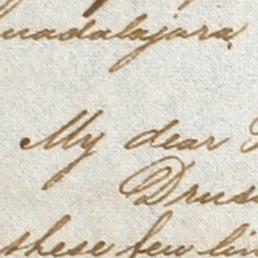 uadalajara
My dear
Drus
these few lin